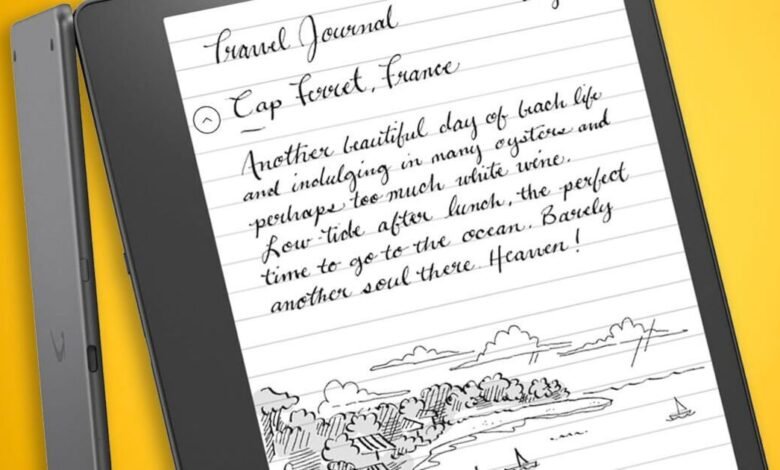 Travel Journal
Cap Ferret, France
Another beautiful day of beach life
and indulging in many oysters and
perhaps too much white wine.
Low tide after lunch, the perfect
time to go to the ocean. Barely
another soul there. Heaven!